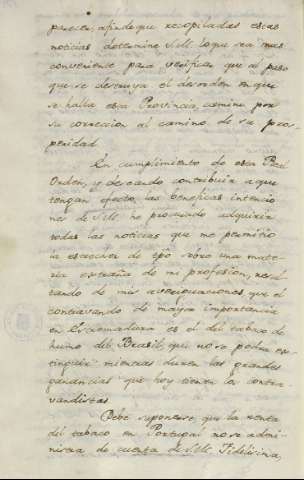 parecer, afin de que recopiladas estas
noticias determine S.M. lo que sea mas
conveniente para verificar que al paso
que se destruya el desorden en que
se halla esta Provincia, camine por
su correccion al camino de su pros-
peridad.
En cumplimiento de esta Real
Orden, y deseando contribuir a que
tengan efecto las beneficas intencio
nes de S.M. he procurado adquirir
todas las noticias que me permitio
la escasez de tpô sobre una mate-
ria estraña de mi profesion, resul
tando de mis averiguaciones, que el
contravando de mayor importancia
en Extremadura es el del tabaco de
humo del Brasil, que no se podra es-
tinguir mientras duren las grandes
ganancias que hoy tienen los contra-
vandistas.
Debe suponerse, que la renta
del tabaco en Portugal no se admi-
nistra de cuenta de S.M. Fidelisima,